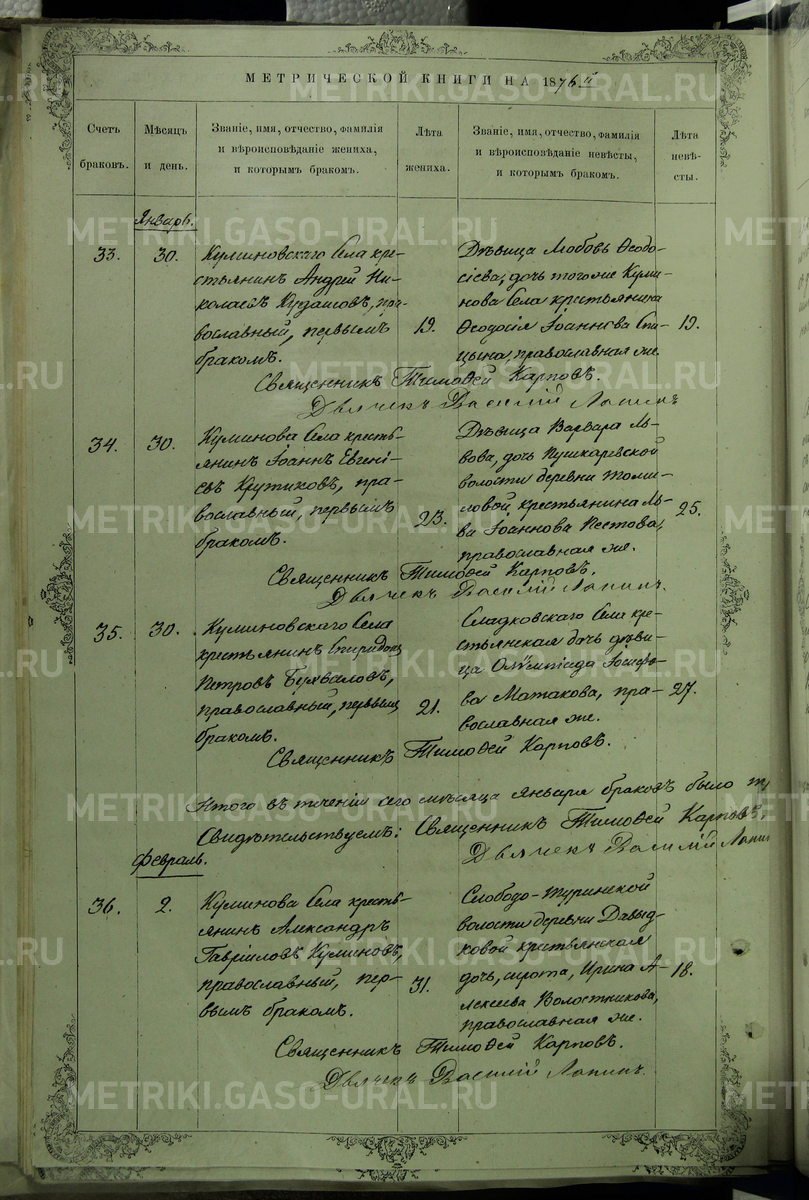 МЕТРИЧЕСКОЙ КНИГИ НА 1876й
Счетъ браковъ.
Мѣсяцъ и день.
Званіе, имя, отчество, фамилія
и вѣроисповѣданіе жениха,
и которымъ бракомъ.
Лѣта жениха.
Званіе, имя, отчество, фамилія
и вѣроисповѣданіе невѣсты,
и которымъ бракомъ.
Лѣта невѣсты.
Январь.
33. 30.
Куминовскаго Села кре-
стьянинъ Андрей Ни-
колаевъ пра-
вославный, первымъ
бракомъ.
19.
Дѣвица Любовь Ѳеодо-
сіева, дочь тогоже Куми-
нова Села крестьянина
Ѳеодосія Іоаннова Спи-
цына, православная же.
19.
Священникъ Тимоѳей Карповъ.
Дьячекъ Василій Лапинъ
34. 30.
Куминова Села кресть-
янинъ Іоаннъ Евгені-
евъ Крутиковъ, пра-
вославный, первымъ
бракомъ.
23.
Дѣвица Варвара Ль-
вова, дочь Пушкаревской
волости деревни Томи-
ловой крестьянина Ль-
ва Іоаннова Пестова,
православная же.
25.
Священникъ Тимоѳей Карповъ.
Дьячекъ Василій Лапинъ.
35. 30.
Куминовскаго Села
крестьянинъ Спиридонъ
Петровъ Бухваловъ,
православный, первымъ
бракомъ.
21.
Сладковскаго Села кре-
стьянская дочь дѣви-
ца Олимпіада Іосифо-
ва Матакова, пра-
вославная же.
27.
Священникъ Тимоѳей Карповъ.
Итого въ теченіи сего мѣсяца Января браковъ было
Свидѣтельствуемъ: Священникъ Тимоѳей Карповъ.
Дьячекъ Василій Лапин
Февраль.
36. 2.
Куминова Села кресть-
янинъ Александръ
Гавріиловъ Куминовъ,
православный, пер-
вымъ бракомъ.
31.
Слободо-Туринской
волости деревни Давыд-
ковой крестьянская
дочь, сирота, Ирина А-
лексеева Волостникова,
православная же.
18.
Священникъ Тимоѳей Карповъ.
Дьячекъ Василій Лапинъ.
METRIKI.GASO-URAL.RU